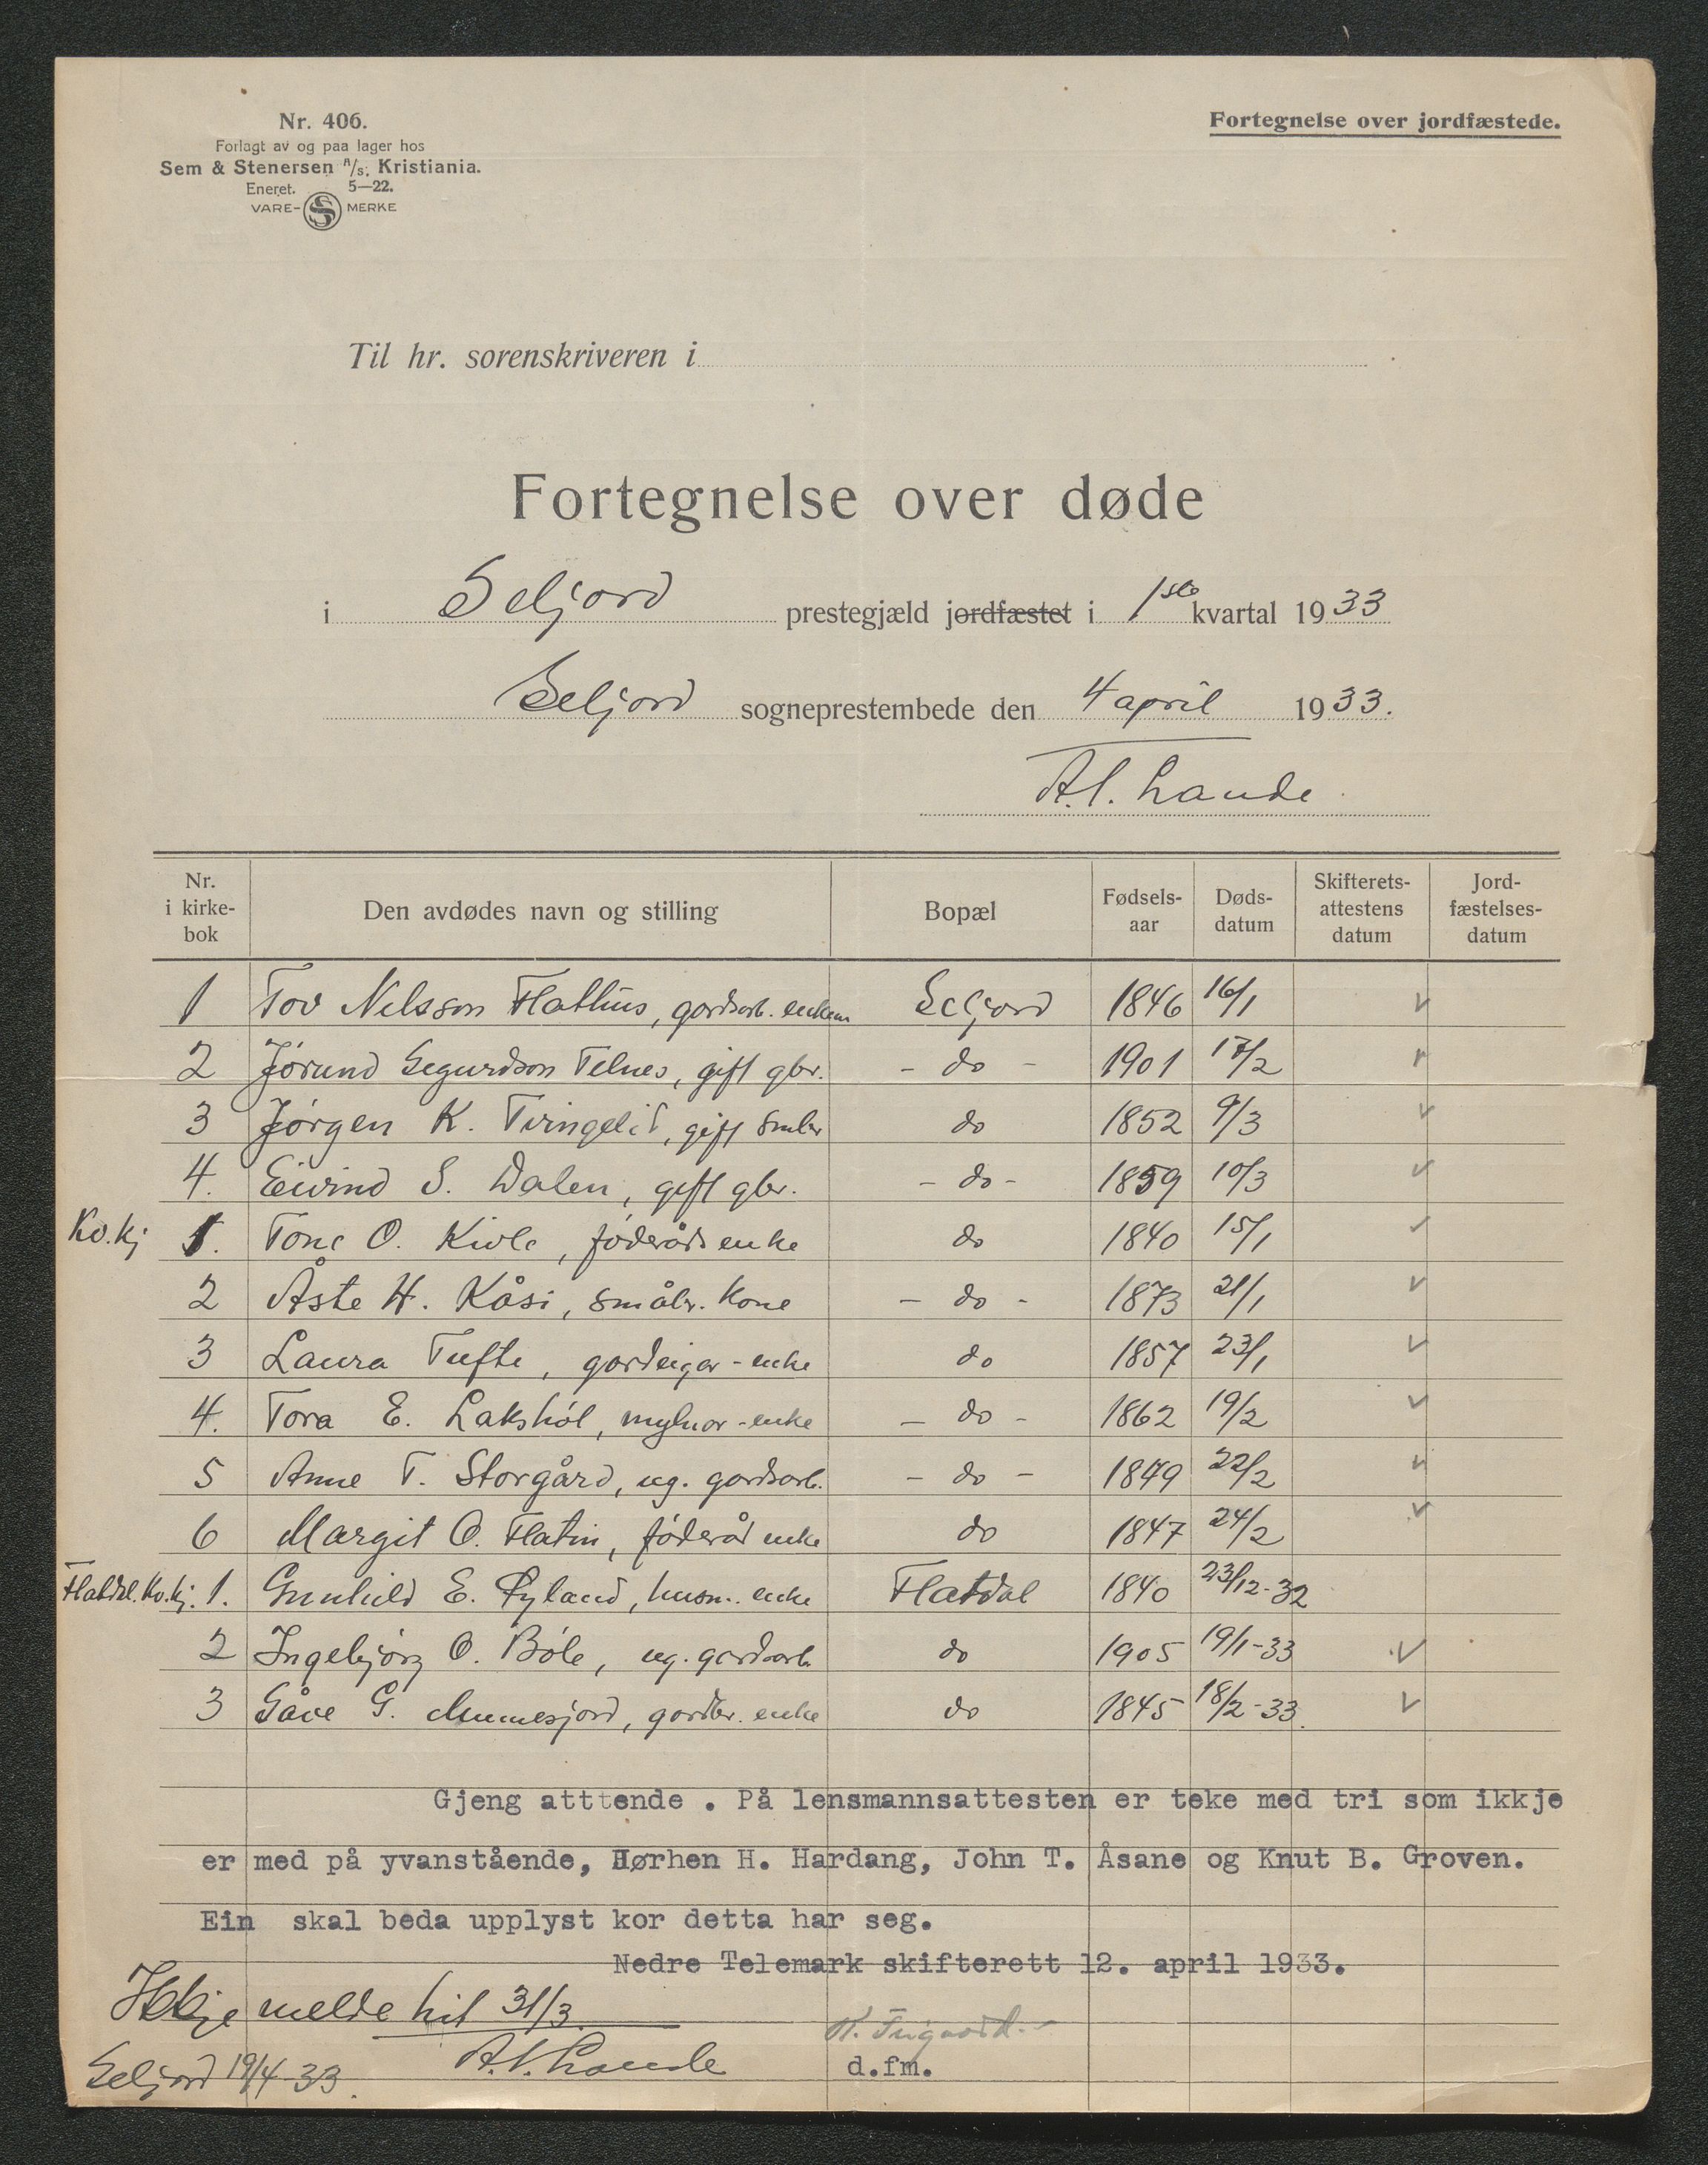 Nr. 406.
Forlagt av og paa lager hos
Sem & Stenersen A/S, Kristiania.
Eneret. 5—22.
VARE- S MERKE
Fortegnelse over jordfæstede.
Til hr. sorenskriveren i
Fortegnelse over døde
i Seljord prestegjæld jordfæstet i 1ste kvartal 1933
Seljord sogneprestembede den 4 april 1933.
A. L. Lande
Nr. i kirke-bok Den avdødes navn og stilling Bopæl Fødsels-aar Døds-datum Skifterets-attestens datum Jord-fæstelses-datum
1 Tov Nilsson Flathus, gardsarb. enkem Seljord 1846 16/1 v
2 Jørund Segurdson Telnes, gift gbr. - do - 1901 17/2 v
3 Jørgen K. Tveingeli, gift smbr do 1852 9/3 v
4. Eivind S. Dalen, gift gbr. - do - 1859 10/3 v
Kv.kj 1. Tone O. Kivle, føderåds enke do 1840 15/1 v
2 Åste H. Kåsi, småbr. kone - do - 1873 21/1 v
3 Laura Tufte, gardeigar-enke do 1857 23/1 v
4. Tora E. Lakshøl, mylnar-enke - do - 1862 19/2 v
5 Anne T. Storgård, ug. gardsarb. - do - 1849 22/2 v
6 Margit O. Flatin, føderåd enke do 1847 24/2 v
Flatdal. Kv.kj. 1. Gunhild E. Ryland, husm. enke Flatdal 1840 23/12-32
2 Ingebjørg O. Bøle, ug. gardsarb do 1905 19/1-33 v
3 Gåve G. Ammesjord, gardbr. enke do 1845 18/2-33. v
Gjeng atttende . På lensmannsattesten er teke med tri som ikkje
er med på yvanstående, Hørhen H. Hardang, John T. Åsane og Knut B. Groven.
Ein skal beda upplyst kor detta har seg.
Nedre Telemark skifterett 12. april 1933.
Ikkje melde hit 31/3.
A. L. Lande
d.fm.
Seljord 19/4 33.